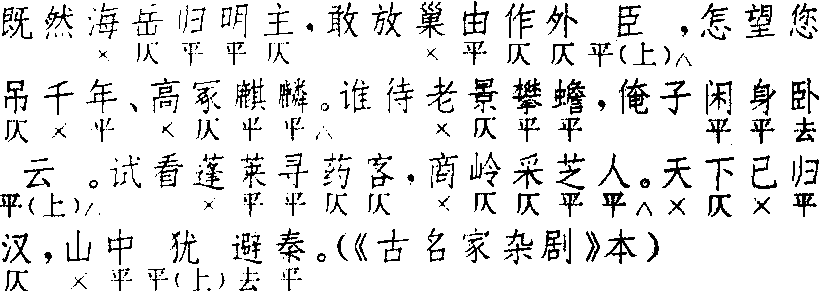 既然海岳归明主，敢放巢由作外臣，怎望您
× 仄 平 平 仄 × 平 仄 仄 平(上)△
吊千年、高冢麒麟。谁待老景攀蟾，俺子闲身卧
仄 × 平 × 仄 平 平 △ × 仄 平 平 平 平 去
云。试看蓬莱寻药客，商岭采芝人。天下已归
平(上)△ × 平 平 仄 仄 × 仄 仄 平 平 △ × 仄 × 平
汉，山中犹避秦。(《古名家杂剧》本)
仄 × 平 平(上) 去 平